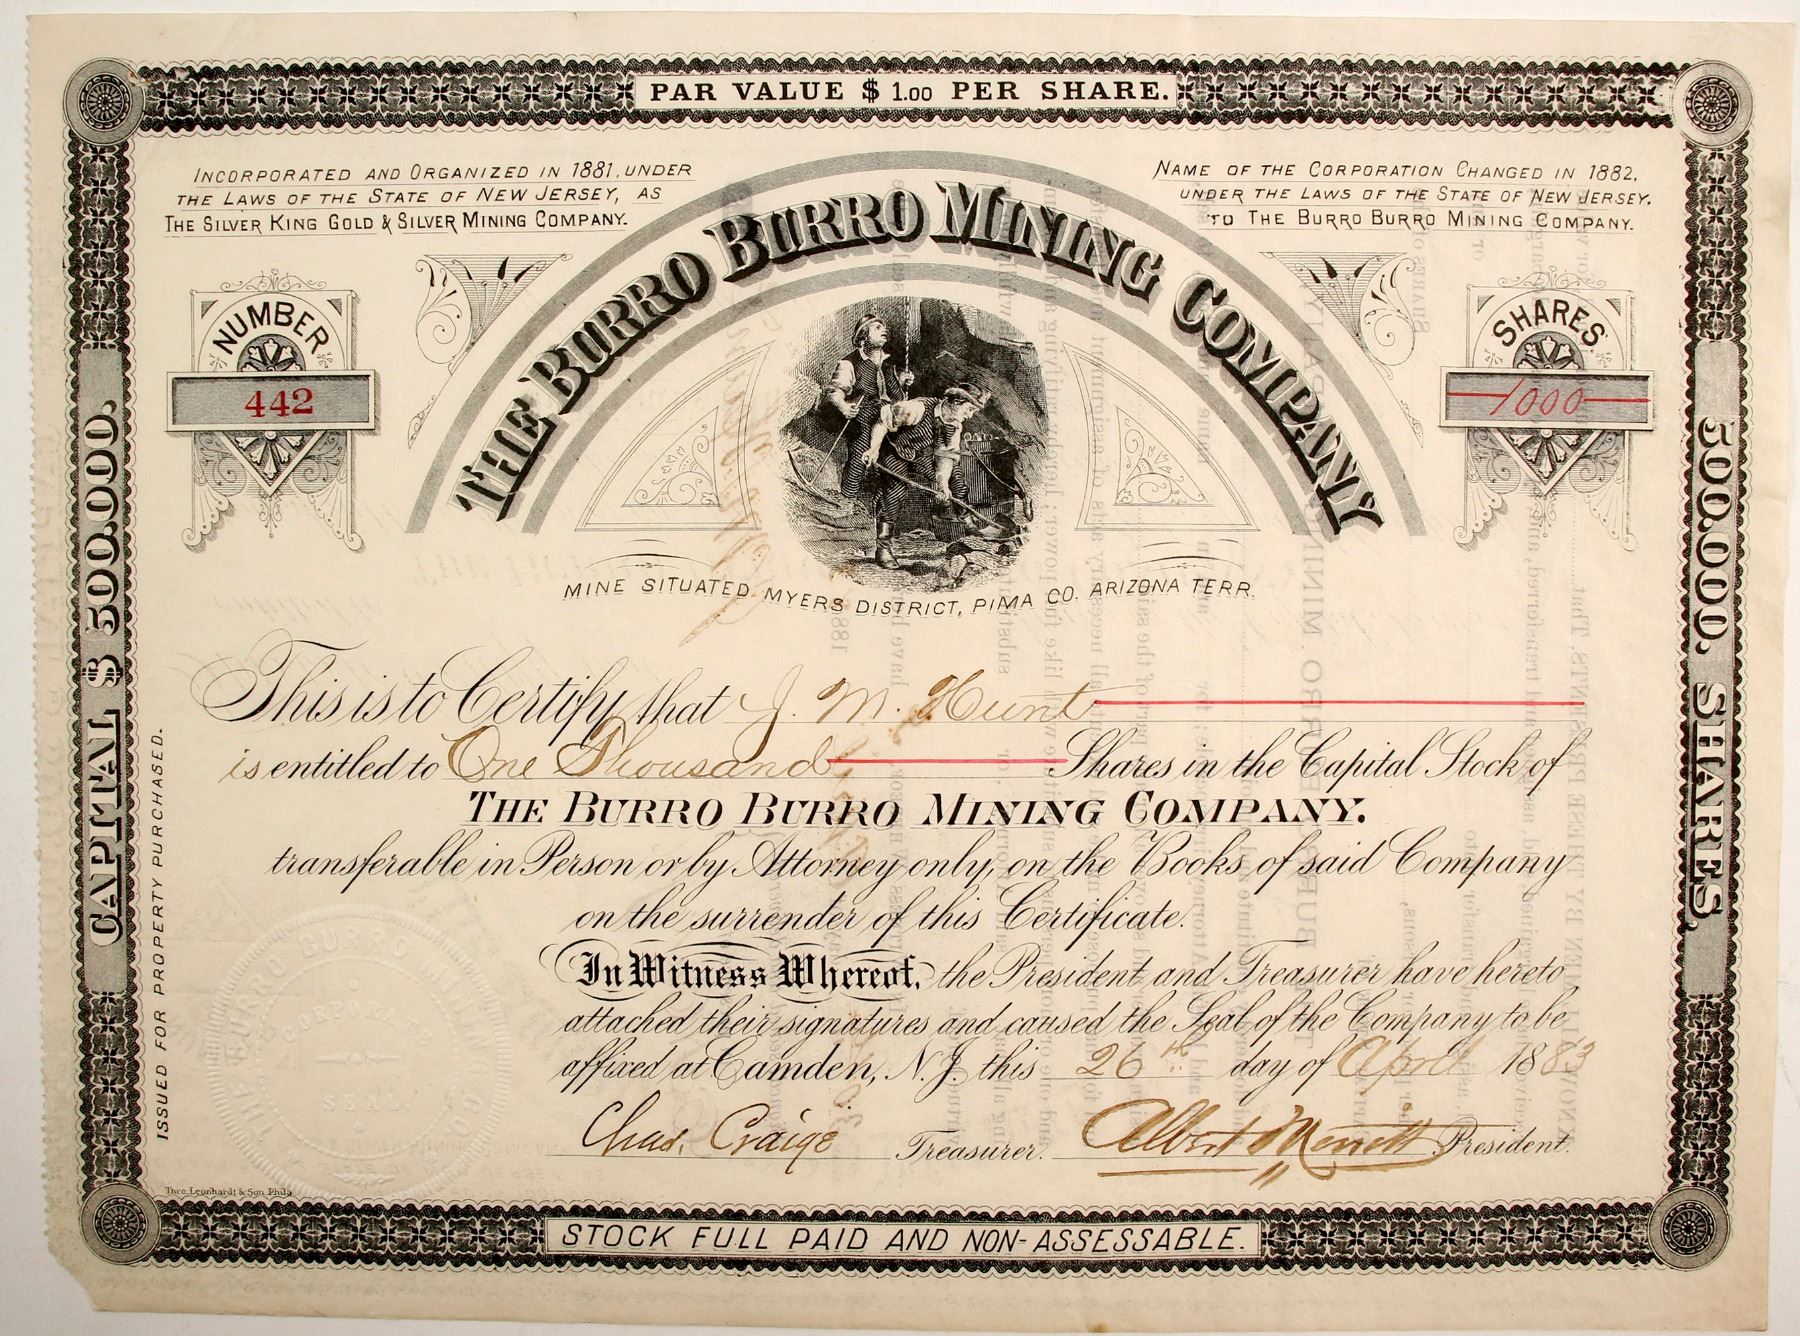 PAR VALUE $ 1.00 PER SHARE.
INCORPORATED AND ORGANIZED IN 1881, UNDER
THE LAWS OF THE STATE OF NEW JERSEY, AS
THE SILVER KING GOLD & SILVER MINING COMPANY.
NAME OF THE CORPORATION CHANGED IN 1882,
UNDER THE LAWS OF THE STATE OF NEW JERSEY,
TO THE BURRO BURRO MINING COMPANY.
THE BURRO BURRO MINING COMPANY
NUMBER
442
SHARES
1000
MINE SITUATED MYERS DISTRICT, PIMA CO. ARIZONA TERR.
CAPITAL $ 500.000.
500.000. SHARES,
ISSUED FOR PROPERTY PURCHASED.
This is to Certify that J. M. Hunt
is entitled to One Thousand Shares in the Capital Stock of
THE BURRO BURRO MINING COMPANY.
transferable in Person or by Attorney only, on the Books of said Company
on the surrender of this Certificate.
In Witness Whereof, the President and Treasurer have hereto
attached their signatures and caused the Seal of the Company to be
affixed at Camden, N.J. this 26th day of April 1883
Chas. Craige Treasurer. Albert Merritt President.
SEAL
Theo. Leonhardt & Son Phila
STOCK FULL PAID AND NON-ASSESSABLE.